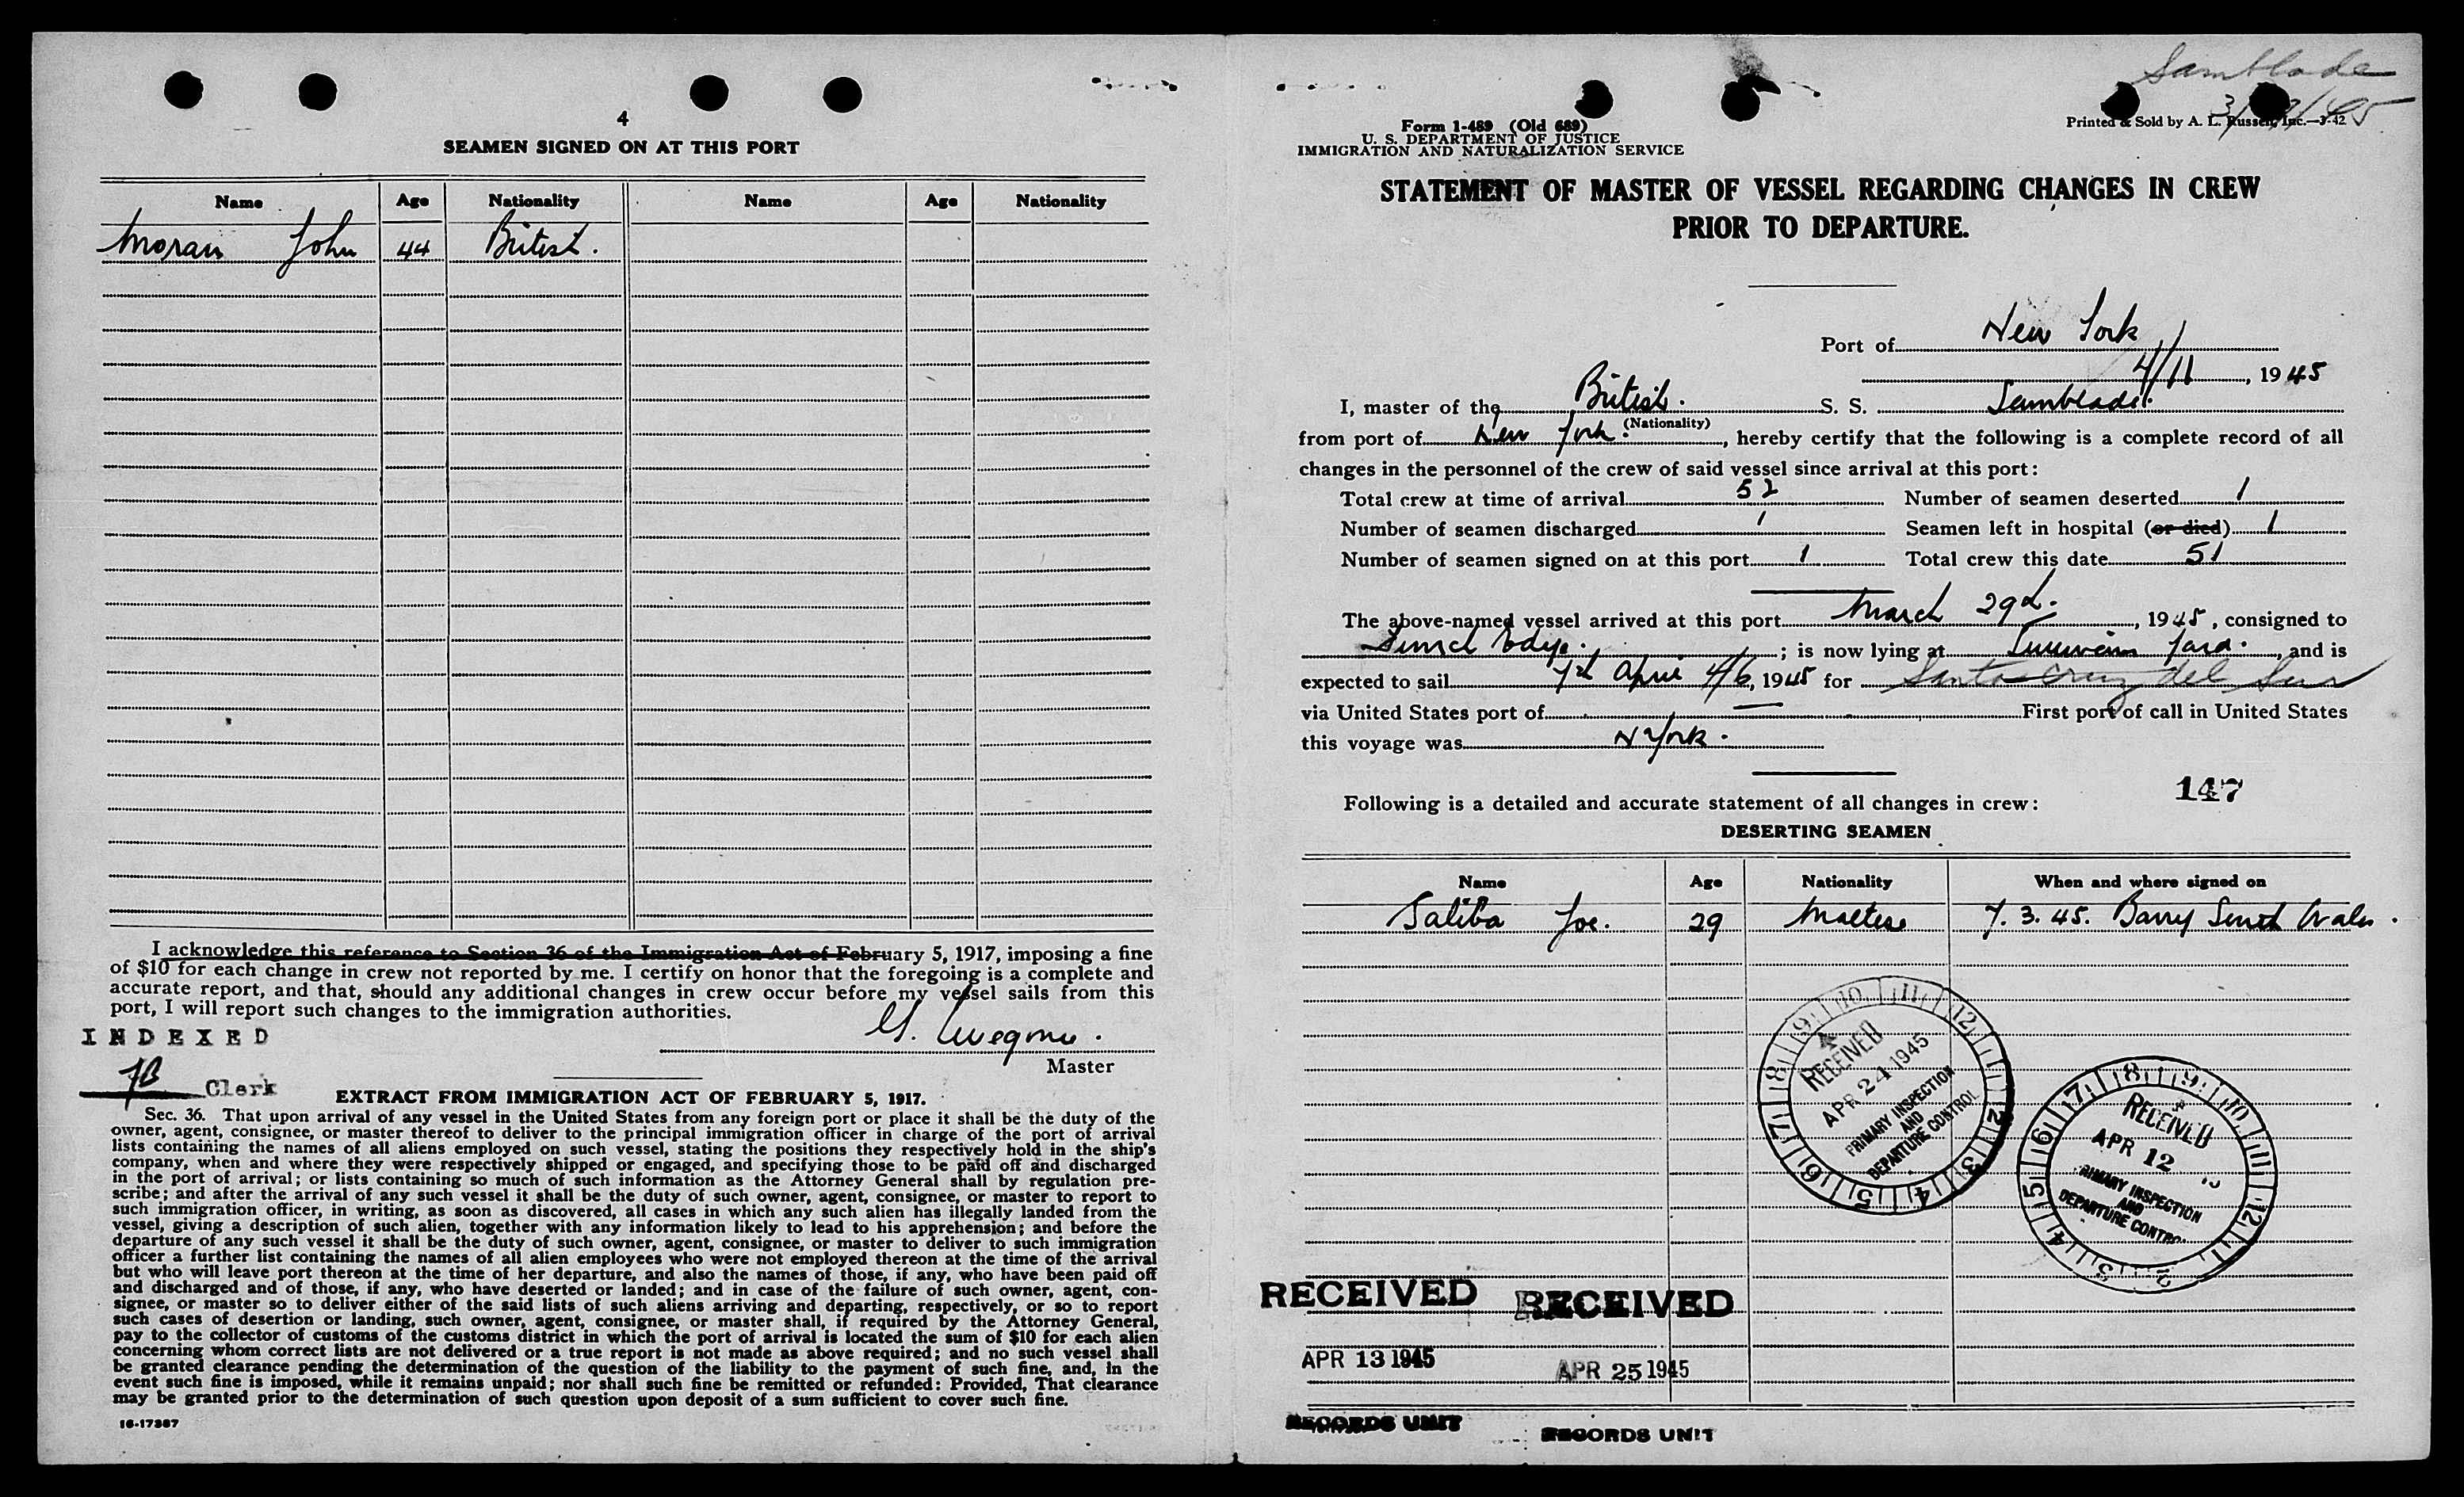 4
SEAMEN SIGNED ON AT THIS PORT
Name Age Nationality Name Age Nationality
Moran John 44 British.
I acknowledge this reference to Section 36 of the Immigration Act of February 5, 1917, imposing a fine
of $10 for each change in crew not reported by me. I certify on honor that the foregoing is a complete and
accurate report, and that, should any additional changes in crew occur before my vessel sails from this
port, I will report such changes to the immigration authorities.
INDEXED
Master
Clerk
EXTRACT FROM IMMIGRATION ACT OF FEBRUARY 5, 1917.
Sec. 36. That upon arrival of any vessel in the United States from any foreign port or place it shall be the duty of the
owner, agent, consignee, or master thereof to deliver to the principal immigration officer in charge of the port of arrival
lists containing the names of all aliens employed on such vessel, stating the positions they respectively hold in the ship's
company, when and where they were respectively shipped or engaged, and specifying those to be paid off and discharged
in the port of arrival; or lists containing so much of such information as the Attorney General shall by regulation pre-
scribe; and after the arrival of any such vessel it shall be the duty of such owner, agent, consignee, or master to report to
such immigration officer, in writing, as soon as discovered, all cases in which any such alien has illegally landed from the
vessel, giving a description of such alien, together with any information likely to lead to his apprehension; and before the
departure of any such vessel it shall be the duty of such owner, agent, consignee, or master to deliver to such immigration
officer a further list containing the names of all alien employees who were not employed thereon at the time of the arrival
but who will leave port thereon at the time of her departure, and also the names of those, if any, who have been paid off
and discharged and of those, if any, who have deserted or landed; and in case of the failure of such owner, agent, con-
signee, or master so to deliver either of the said lists of such aliens arriving and departing, respectively, or so to report
such cases of desertion or landing, such owner, agent, consignee, or master shall, if required by the Attorney General,
pay to the collector of customs of the customs district in which the port of arrival is located the sum of $10 for each alien
concerning whom correct lists are not delivered or a true report is not made as above required; and no such vessel shall
be granted clearance pending the determination of the question of the liability to the payment of such fine, and, in the
event such fine is imposed, while it remains unpaid; nor shall such fine be remitted or refunded: Provided, That clearance
may be granted prior to the determination of such question upon deposit of a sum sufficient to cover such fine.
16-17387
Samblade
Form 1-489 (Old 689)
U. S. DEPARTMENT OF JUSTICE
IMMIGRATION AND NATURALIZATION SERVICE
Printed & Sold by A. L. Russell, Inc.—3-42
STATEMENT OF MASTER OF VESSEL REGARDING CHANGES IN CREW
PRIOR TO DEPARTURE.
Port of New York
4/11, 1945
I, master of the British. S. S. Samblade.
(Nationality)
from port of New York., hereby certify that the following is a complete record of all
changes in the personnel of the crew of said vessel since arrival at this port:
Total crew at time of arrival 52 Number of seamen deserted 1
Number of seamen discharged 1 Seamen left in hospital (or died) 1
Number of seamen signed on at this port 1 Total crew this date 51
The above-named vessel arrived at this port March 29th., 1945, consigned to
; is now lying at and is
expected to sail April 4/6, 1945 for Santa Cruz del Sur
via United States port of — First port of call in United States
this voyage was N York.
147
Following is a detailed and accurate statement of all changes in crew:
DESERTING SEAMEN
Name Age Nationality When and where signed on
Saliba Joe. 29 Maltese 7. 3. 45. Barry South Wales.
9 10 11 12 1 2 3 4 5 6 7 8
RECEIVED
APR 24 1945
PRIMARY INSPECTION
AND
DEPARTURE CONTROL
7 8 9 10 11 12 1 2 3 4 5 6
RECEIVED
APR 12
PRIMARY INSPECTION
AND
DEPARTURE CONTROL
RECEIVED RECEIVED
APR 13 1945 APR 25 1945
RECORDS UNIT RECORDS UNIT